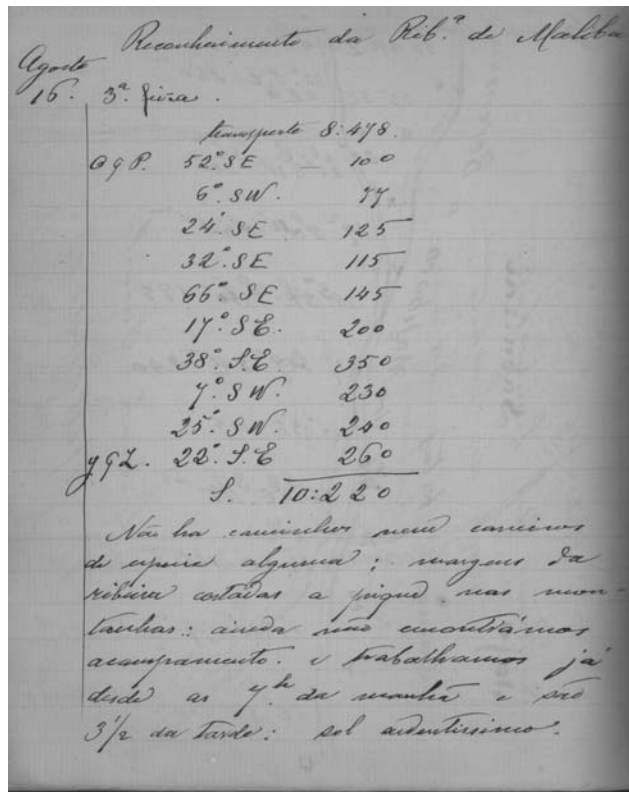 Reconhecimento da Rib.ª de Maliba
Agosto
16. 3ª feira.
transporte 8:478.
O g P. 52° SE — 100
6° SW. 77
24° SE 125
32° SE 115
66° SE 145
17° SE. 200
38° S.E. 350
7° SW. 230
25° SW. 240
y g Z. 22° S.E 260
S. 10:220
Não ha caminhos nem carreiros
de especie alguma; margens da
ribeira cortadas a pique nas mon-
tanhas: ainda não encontrámos
acampamento. e trabalhamos já
desde as 7h da manhã e são
3 1/2 da tarde: sol ardentissimo.